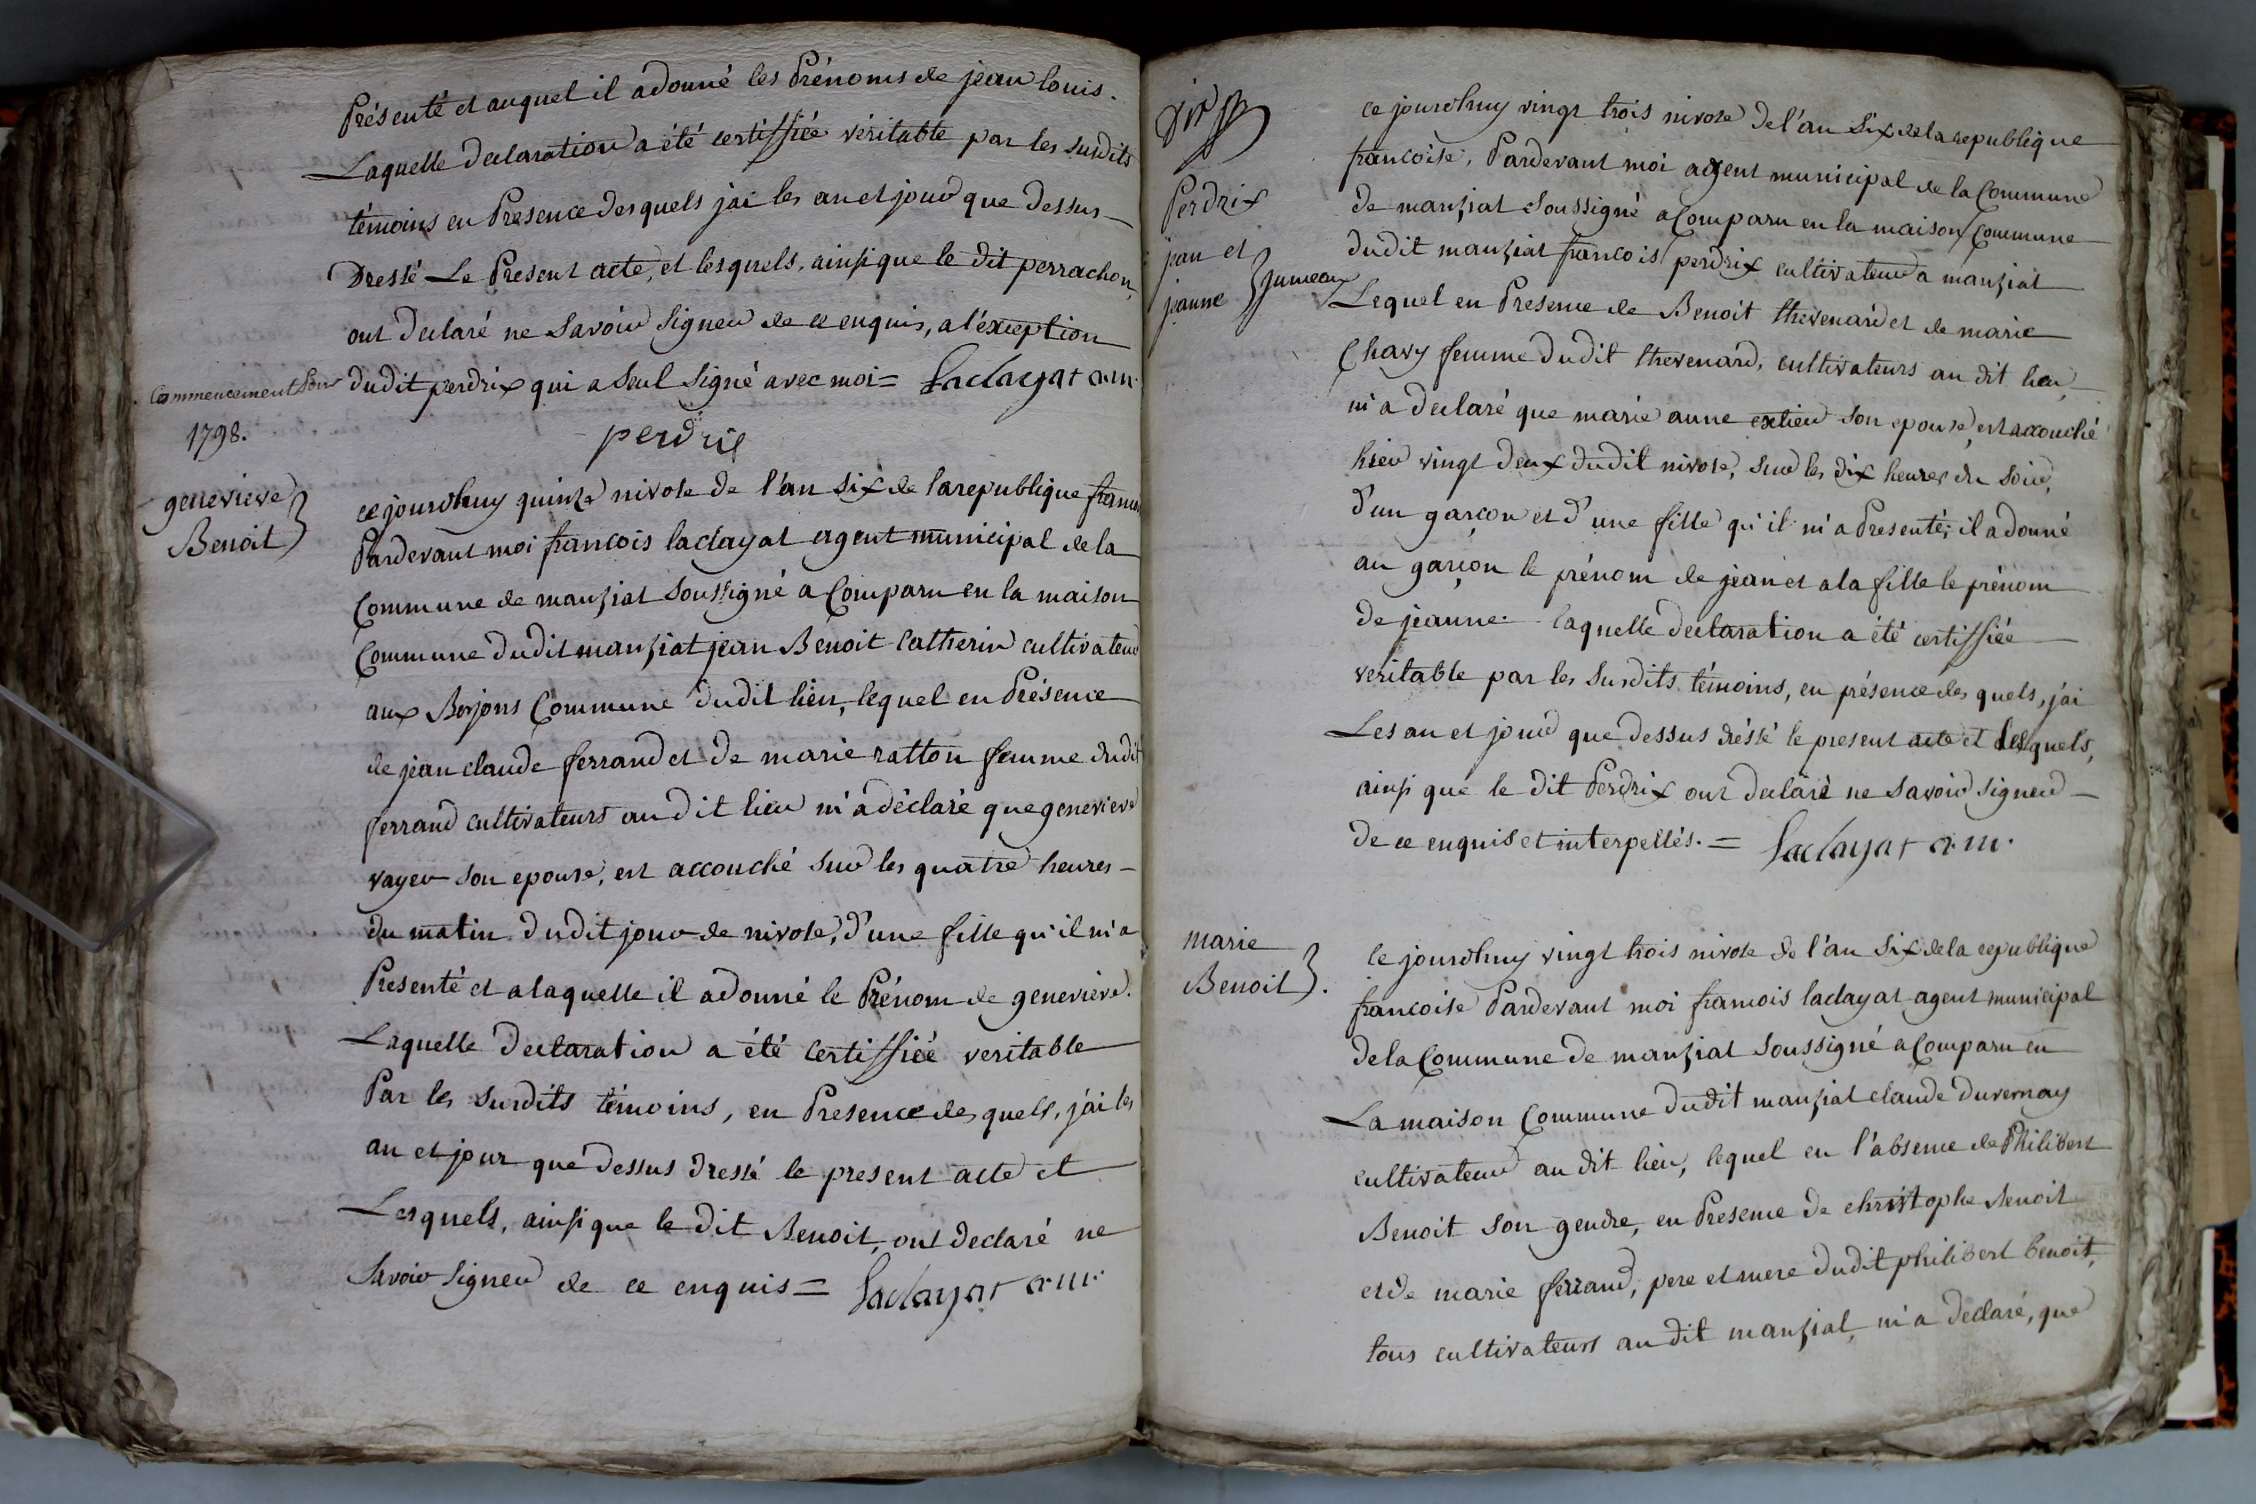 Présenté et auquel il a donné les Prénoms de jean louis.
Laquelle declaration a été certiffiée véritable par les susdits
témoins en Presence desquels j'ai les an et jour que dessus
Dressé Le Present acte, et lesquels, ainsi que le dit perrachon,
ont declaré ne savoir signer de ce enquis, a l'exception
dudit perdrix qui a seul signé avec moi = Laclayat a.m.
perdrix
Commencement
1798.
genevieve
Benoit
ce jourdhuy quinze nivose de l'an six de la republique
Pardevant moi francois laclayat agent municipal de la
Commune de manziat soussigné a Comparu en la maison
Commune dudit manziat jean Benoit Catherin cultivateur
aux Borjons Commune dudit lieu, lequel en Présence
de jean claude ferrand et de marie ratton femme dudit
ferrand cultivateurs au dit lieu m'a déclaré que genevieve
vayer son epouse, est accouché sur les quatre heures
du matin dudit jour de nivose, d'une fille qu'il m'a
Presenté et a laquelle il a donné le Prénom de genevieve.
Laquelle declaration a été certiffiée veritable
Par les susdits témoins, en Presence desquels, j'ai les
an et jour que dessus dressé le present acte et
Lesquels, ainsi que le dit Benoit, ont declaré ne
savoir signer de ce enquis = Laclayat a.m.
Perdrix
jean et
jeanne } jumeaux
ce jourdhuy vingt trois nivose de l'an six de la republique
francoise, Pardevant moi agent municipal de la Commune
de manziat soussigné a Comparu en la maison Commune
dudit manziat francois perdrix cultivateur a manziat
Lequel en Presence de Benoit thevenard et de marie
Chavy femme dudit thevenard, cultivateurs au dit lieu,
m'a declaré que marie anne son epouse, est accouché
hier vingt deux dudit nivose, sur les dix heures du soir,
d'un garcon et d'une fille qu'il m'a Presenté; il a donné
au garçon le prénom de jean et a la fille le prénom
de jeanne. laquelle declaration a été certiffiée
veritable par les susdits témoins, en présence desquels, j'ai
Les an et jour que dessus dréssé le present acte et lesquels,
ainsi que le dit Perdrix ont declaré ne savoir signer
de ce enquis et interpellés. = Laclayat a.m.
marie
Benoit } .
Ce jourdhuy vingt trois nivose de l'an six de la republique
francoise Pardevant moi francois laclayat agent municipal
de la Commune de manziat soussigné a Comparu en
La maison Commune dudit manziat claude duvernay
cultivateur au dit lieu, lequel en l'absence de Philibert
Benoit son gendre, en Presence de christophe Benoit
et de marie ferrand, pere et mere dudit philibert benoit,
tous cultivateurs au dit manziat, m'a declaré, que